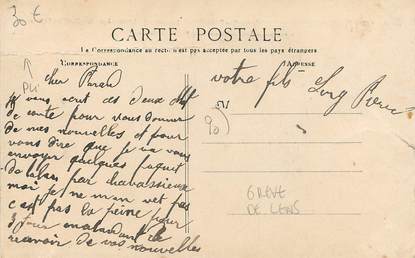 30 €
CARTE POSTALE
La Correspondance au recto n'est pas acceptée par tous les pays étrangers
CORRESPONDANCE
ADRESSE
PLI
cher Parad
je vous ecrit ces deux
de carte pour vous donner
de mes nouvelles et pour
vous dire que je vai vous
envoyer quelques paquet
de tabac par chavassieux
moi je ne m'en
c'est pas la peine pour
3 jour en atandant de
recevoir de vos nouvelles
votre fils Pierre
GREVE
DE LENS